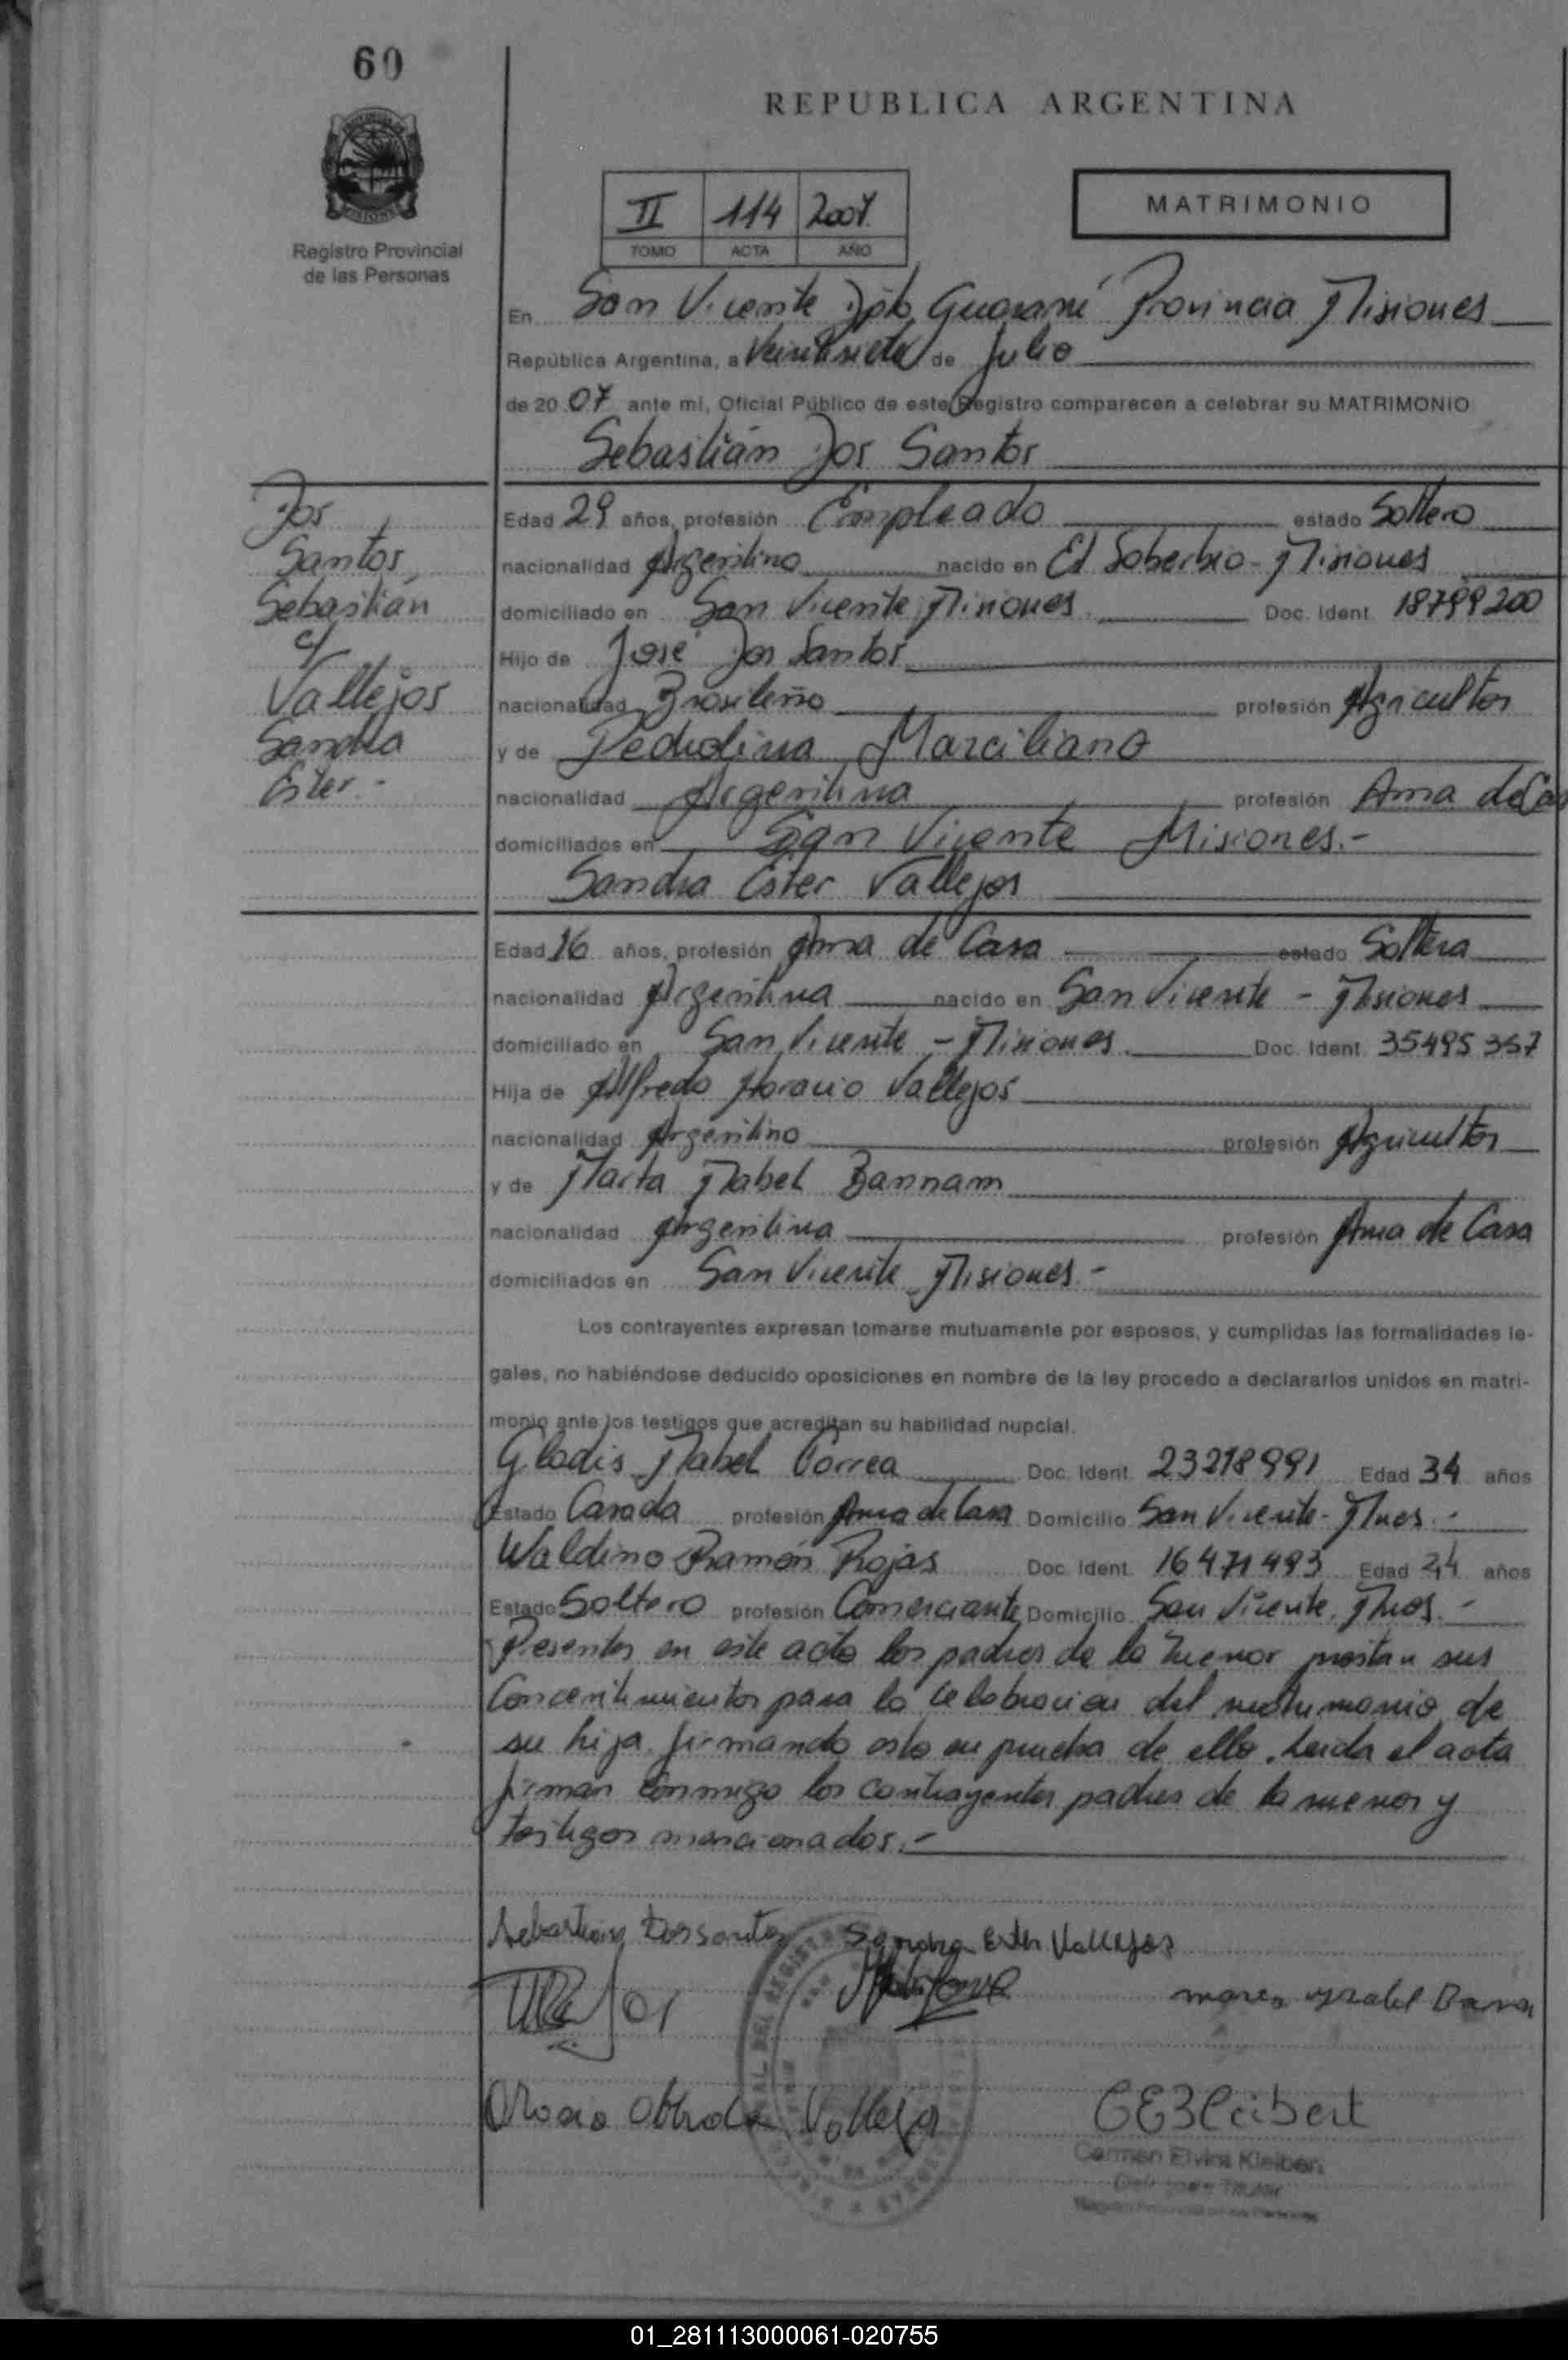 60
REPUBLICA ARGENTINA
II 114 2007
TOMO ACTA AÑO
MATRIMONIO
Registro Provincial
de las Personas
En San Vicente Dpto Guaraní Provincia Misiones
República Argentina, a Veintisiete de Julio
de 20 07 ante mi, Oficial Público de este Registro comparecen a celebrar su MATRIMONIO
Sebastián Dos Santos
Dos
Santos,
Sebastian
c/
Vallejos
Sandra
Ester.-
Edad 29 años, profesión Empleado estado Soltero
nacionalidad Argentino nacido en El Soberbio - Misiones
domiciliado en San Vicente Misiones. Doc. Ident. 18799200
Hijo de José Dos Santos
nacionalidad Brasileño profesión Agricultor
y de Pedrolina Marciliano
nacionalidad Argentina profesión Ama de Cas
domiciliados en San Vicente Misiones.-
Sandra Ester Vallejos
Edad 16 años, profesión Ama de Casa estado Soltera
nacionalidad Argentina nacido en San Vicente - Misiones
domiciliado en San Vicente - Misiones. Doc. Ident. 35495357
Hija de Alfredo Horacio Vallejos
nacionalidad Argentino profesión Agricultor
y de Marta Mabel Bannam
nacionalidad Argentina profesión Ama de Casa
domiciliados en San Vicente Misiones.-
Los contrayentes expresan tomarse mutuamente por esposos, y cumplidas las formalidades le-
gales, no habiéndose deducido oposiciones en nombre de la ley procedo a declararlos unidos en matri-
monio ante los testigos que acreditan su habilidad nupcial.
Gladis Mabel Correa Doc. Ident. 23218991 Edad 34 años
Estado Casada profesión Ama de Casa Domicilio San Vicente - Mnes.-
Waldino Ramón Rojas Doc. Ident. 16471493 Edad 24 años
Estado Soltero profesión Comerciante Domicilio San Vicente, Mnes.-
Presentes en este acto los padres de la menor prestan sus
Concentimientos para la celebracion del matrimonio de
su hija firmando esto en prueba de ello. Leida el acta
firman conmigo los contrayentes padres de la menor y
testigos mencionados.-
Sebastian Dos santos Sandra Ester Vallejos
Vallejos
Carmen Elvira Kleibert
Titular
01_281113000061-020755